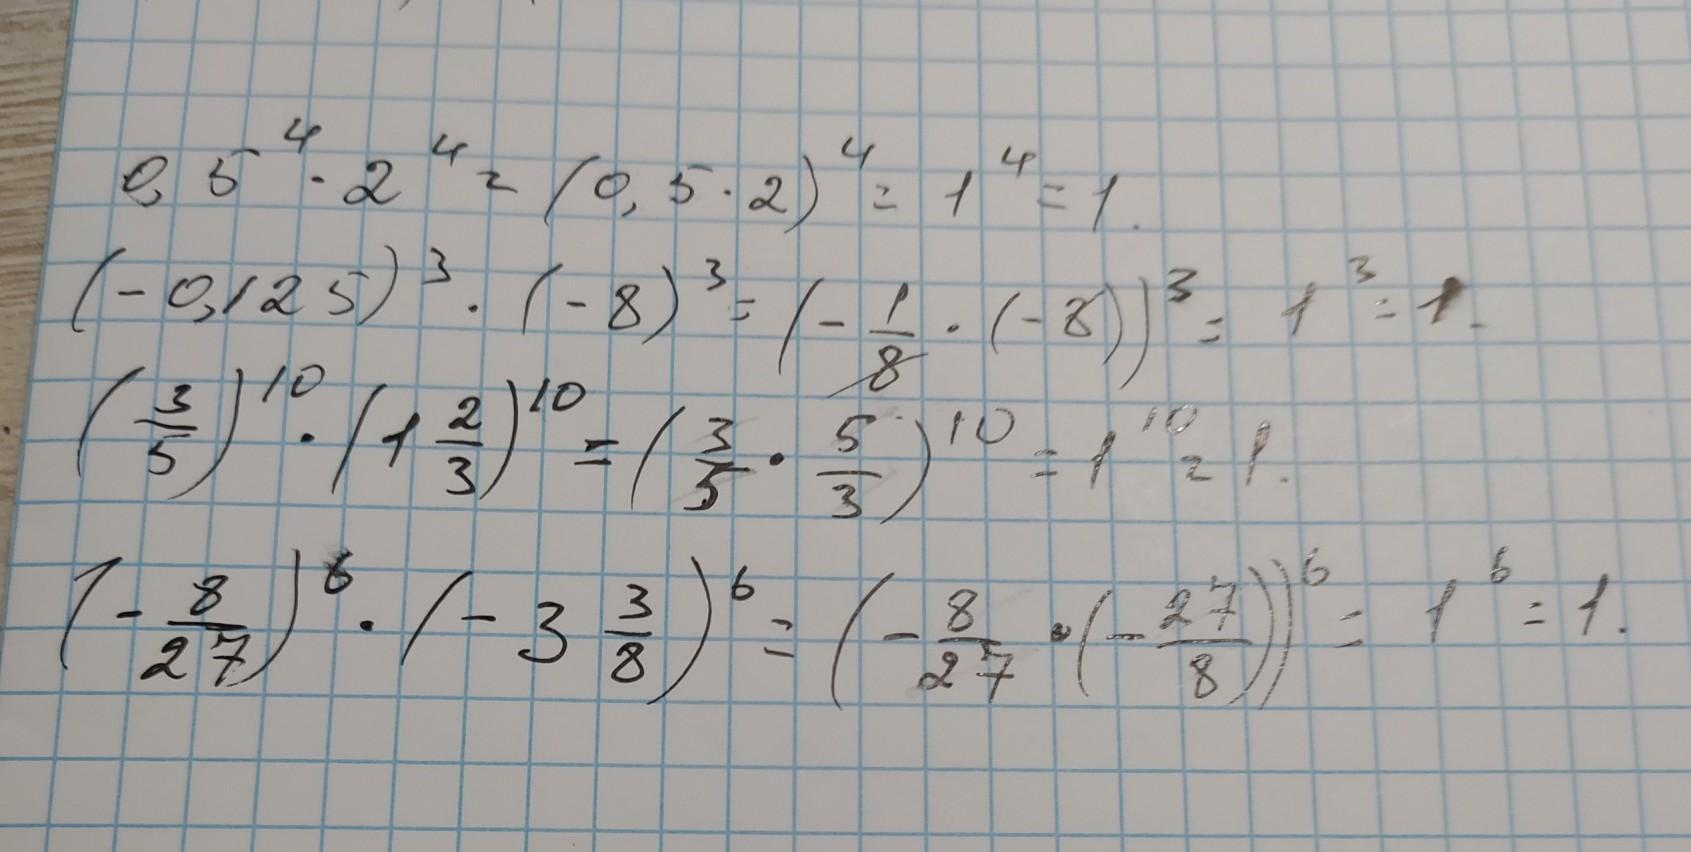 0,5⁴ · 2⁴ = (0,5 · 2)⁴ = 1⁴ = 1.
(-0,125)³ · (-8)³ = (-1/8 · (-8))³ = 1³ = 1.
(3/5)¹⁰ · (1 2/3)¹⁰ = (3/5 · 5/3)¹⁰ = 1¹⁰ = 1.
(-8/27)⁶ · (-3 3/8)⁶ = (-8/27 · (-27/8))⁶ = 1⁶ = 1.